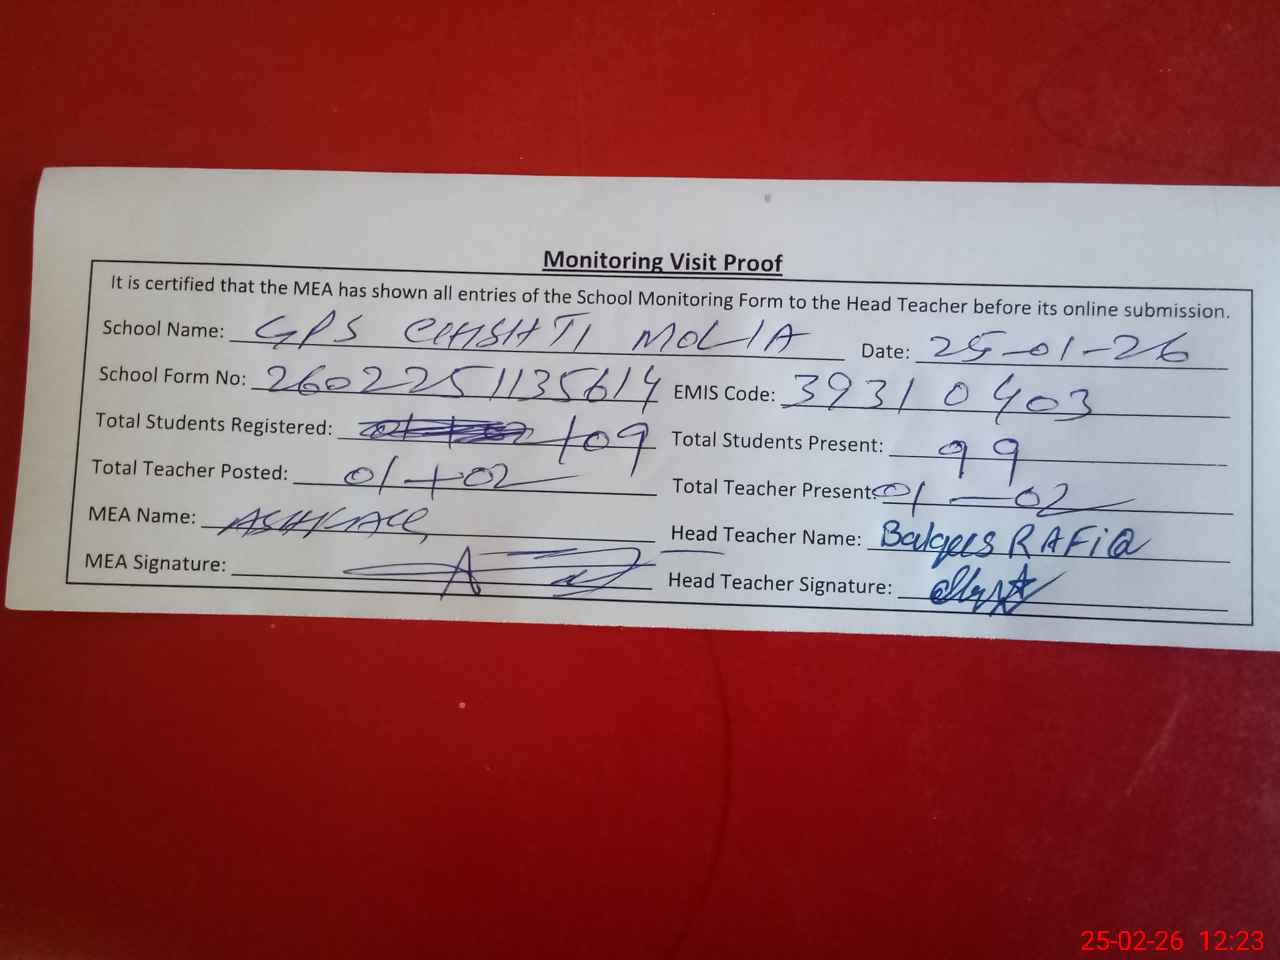 Monitoring Visit Proof
It is certified that the MEA has shown all entries of the School Monitoring Form to the Head Teacher before its online submission.
School Name: GPS CHISHTI MOLIA Date: 25-01-26
School Form No: 26022251135614 EMIS Code: 39310403
Total Students Registered: 109 Total Students Present: 99
Total Teacher Posted: 01+02 Total Teacher Present: 01-02
MEA Name: Head Teacher Name: Balqees RAFiQ
MEA Signature: Head Teacher Signature:
25-02-26 12:23